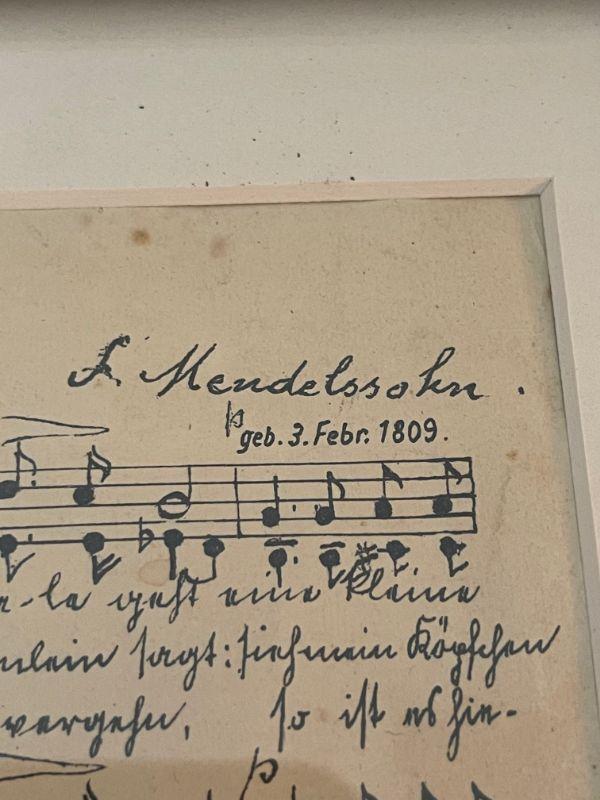 F. Mendelssohn.
p
geb. 3. Febr. 1809.
-le geht eine kleine
nlein sagt: sieh mein Köpfchen
vergehn, so ist es hie-
p